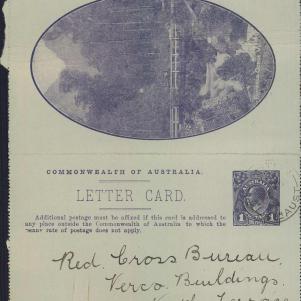 COMMONWEALTH OF AUSTRALIA.
LETTER CARD.
Additional postage must be affixed if this card is addressed to
any place outside the Commonwealth of Australia to which the
penny rate of postage does not apply.
1 1
AUS
Red. Cross Bureau,
Verco. Buildings.
North Terrace